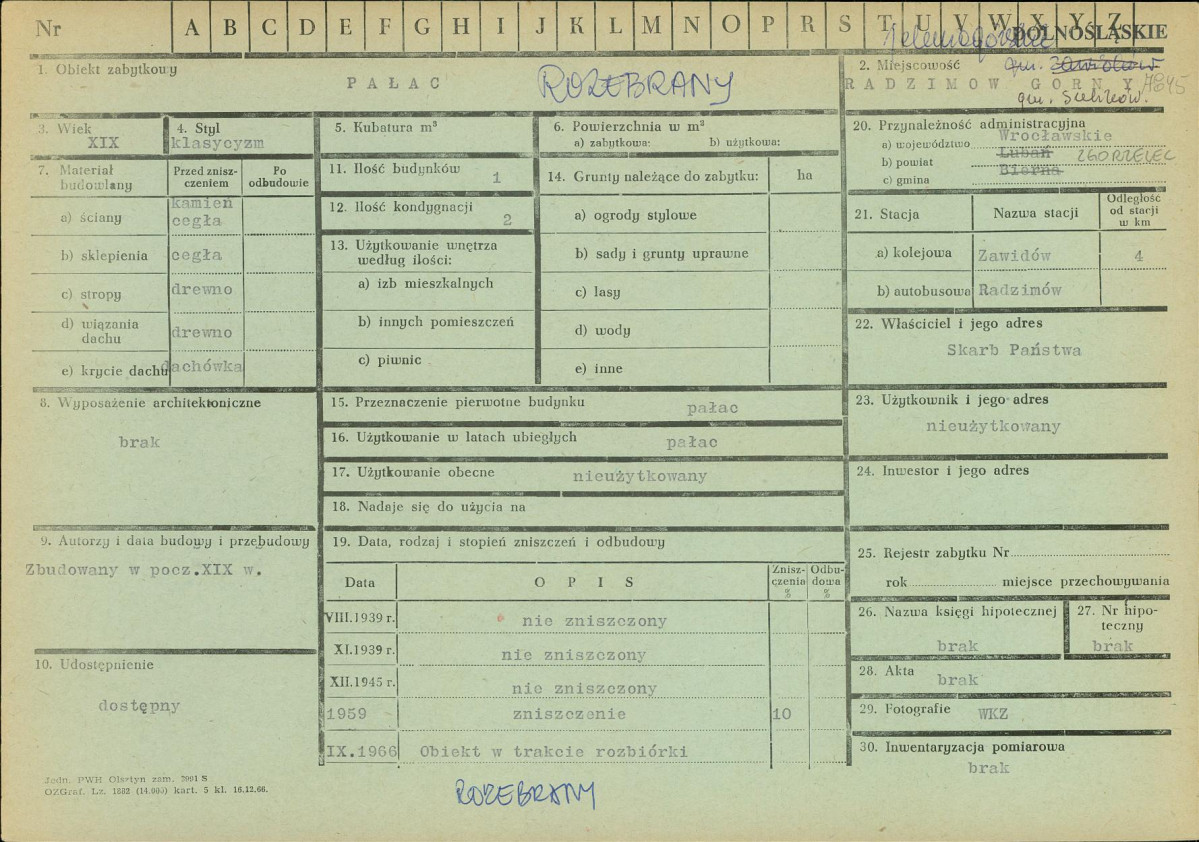 Nr A B C D E F G H I J K L M N O P R S T U V W X Y Z
DOLNOŚLĄSKIE
jeleniogórskie
1. Obiekt zabytkowy
PAŁAC
ROZEBRANY
2. Miejscowość
gm. Zawidów
RADZIMOW GORNY
gm. Sulików.
3. Wiek
XIX
4. Styl
klasycyzm
5. Kubatura m³
6. Powierzchnia w m³
a) zabytkowa: b) użytkowa:
7. Materiał budowlany
Przed zniszczeniem
Po odbudowie
a) ściany kamień
cegła
b) sklepienia cegła
c) stropy drewno
d) wiązania dachu drewno
e) krycie dachu dachówka
8. Wyposażenie architektoniczne
brak
9. Autorzy i data budowy i przebudowy
Zbudowany w pocz.XIX w.
10. Udostępnienie
dostępny
11. Ilość budynków 1
12. Ilość kondygnacji 2
13. Użytkowanie wnętrza
według ilości:
a) izb mieszkalnych
b) innych pomieszczeń
c) piwnic
14. Grunty należące do zabytku: ha
a) ogrody stylowe
b) sady i grunty uprawne
c) lasy
d) wody
e) inne
15. Przeznaczenie pierwotne budynku pałac
16. Użytkowanie w latach ubiegłych pałac
17. Użytkowanie obecne nieużytkowany
18. Nadaje się do użycia na
19. Data, rodzaj i stopień zniszczeń i odbudowy
Data OPIS Zniszczenia % Odbudowa %
VIII.1939 r. nie zniszczony
XI.1939 r. nie zniszczony
XII.1945 r. nie zniszczony
1959 zniszczenie 10
IX.1966 Obiekt w trakcie rozbiórki
ROZEBRANY
20. Przynależność administracyjna
a) województwo Wrocławskie
b) powiat Lubań ZGORZELEC
c) gmina Bierna
21. Stacja Nazwa stacji Odległość od stacji w km
a) kolejowa Zawidów 4
b) autobusowa Radzimów
22. Właściciel i jego adres
Skarb Państwa
23. Użytkownik i jego adres
nieużytkowany
24. Inwestor i jego adres
25. Rejestr zabytku Nr
rok miejsce przechowywania
26. Nazwa księgi hipotecznej
brak
27. Nr hipoteczny
brak
28. Akta brak
29. Fotografie WKZ
30. Inwentaryzacja pomiarowa
brak
Jedn. PWH Olsztyn zam. 3991 S
OZGraf. Lz. 1882 (14.000) kart. 5 kl. 16.12.66.